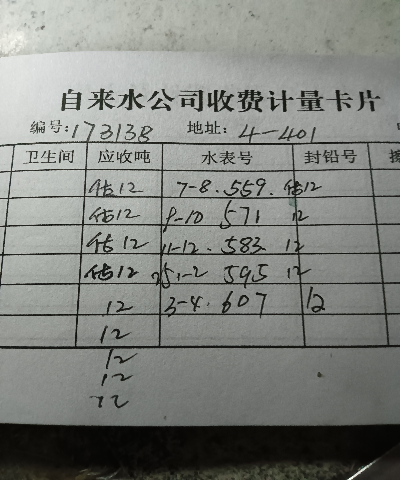 自来水公司收费计量卡片
编号:173138 地址:4-401
卫生间 应收吨 水表号 封铅号
估12 7-8.559.估12
估12 9-10 571 12
估12 11-12.583 12
估12 25.1-2 595 12
12 3-4.607 12
12
12
12
12